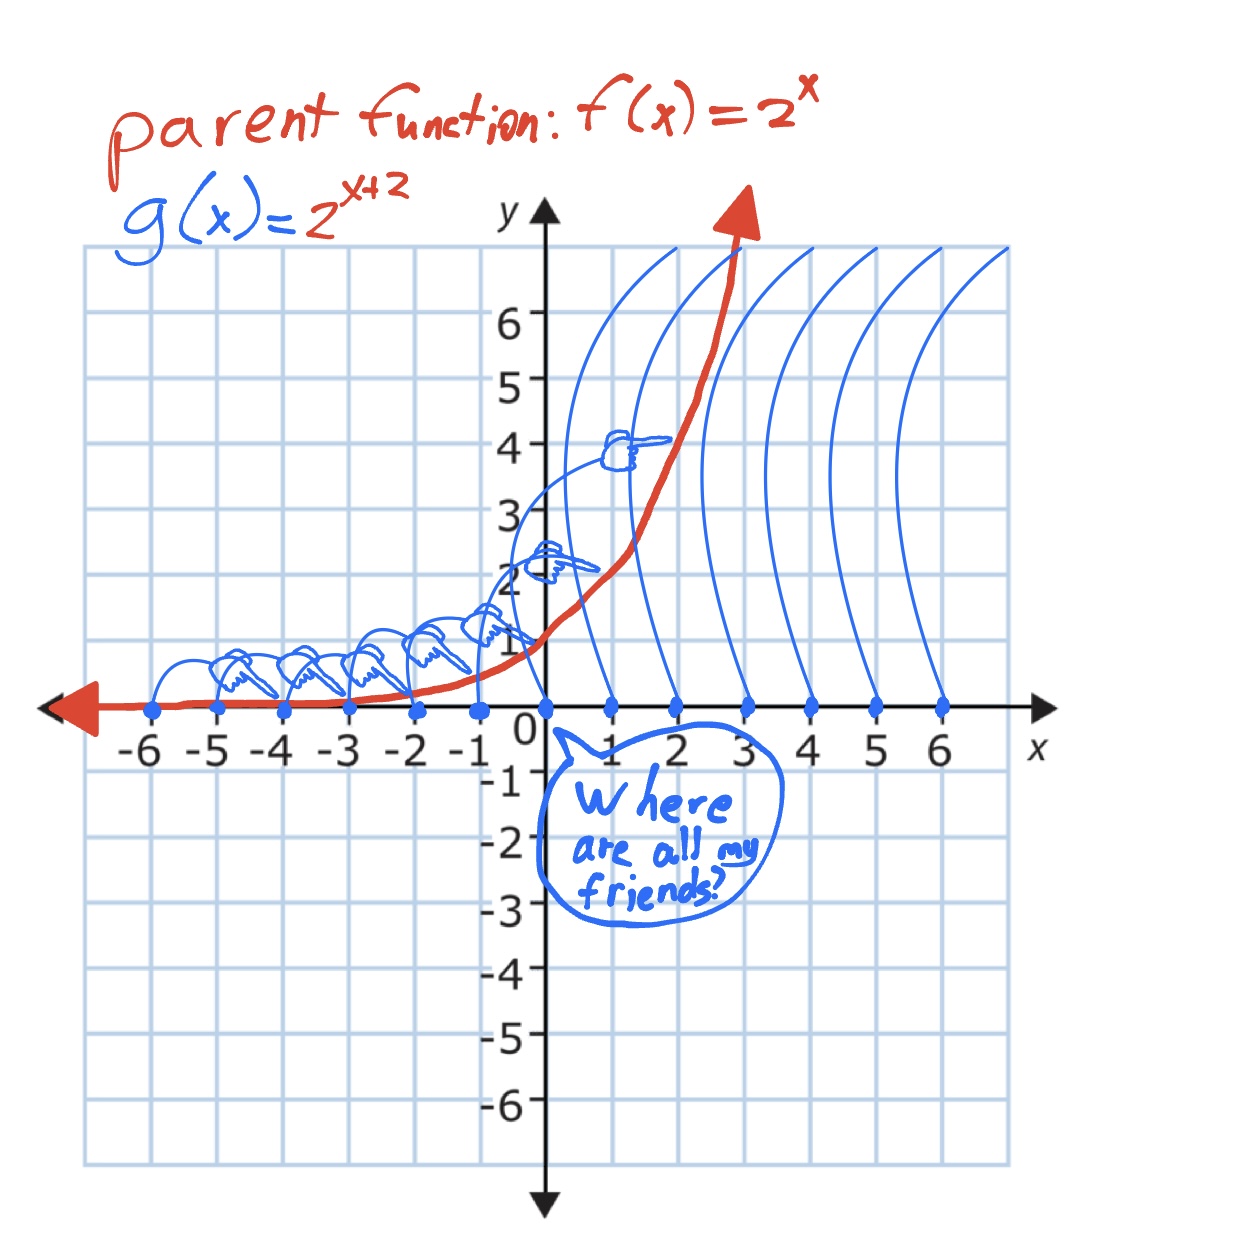 parent function: f(x) = 2^x
g(x) = 2^x+2
y
6
5
4
3
2
1
0
-6 -5 -4 -3 -2 -1 1 2 3 4 5 6 x
-1
-2
-3
-4
-5
-6
Where
are all my
friends?